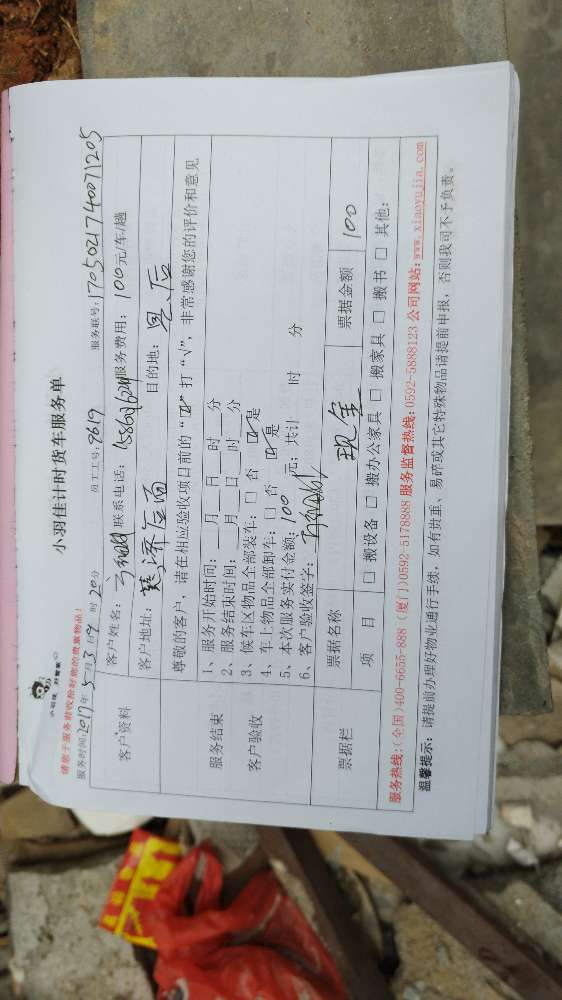 小羽佳计时货车服务单
小羽佳，好管家
请您于服务前收拾好您的贵重物品！
服务时间:2017年5月3日9时20分 员工工号:2619 服务联号:1705021740071205
客户资料
客户姓名: 联系电话: 服务费用: 100元/车/趟
客户地址: 目的地:
尊敬的客户，请在相应验收项目前的“☑”打“√”，非常感谢您的评价和意见
服务结束
客户验收
1、服务开始时间: 月 日 时 分
2、服务结束时间: 月 日 时 分
3、候车区物品全部装车: □ 否 ☑ 是
4、车上物品全部卸车: □ 否 ☑ 是
5、本次服务实付金额: 100 元; 共计 时 分
6、客户验收签字:
票据栏
票据名称 现金 票据金额 100
项目 □ 搬设备 □ 搬办公家具 □ 搬家具 □ 搬书 □ 其他:
服务热线:(全国)400-6655-888 (厦门)0592-5178888 服务监督热线:0592-5888123 公司网站:www.xiaoyujia.com
温馨提示: 请提前办理好物业通行手续，如有贵重、易碎或其它特殊物品请提前申报，否则我司不予负责。